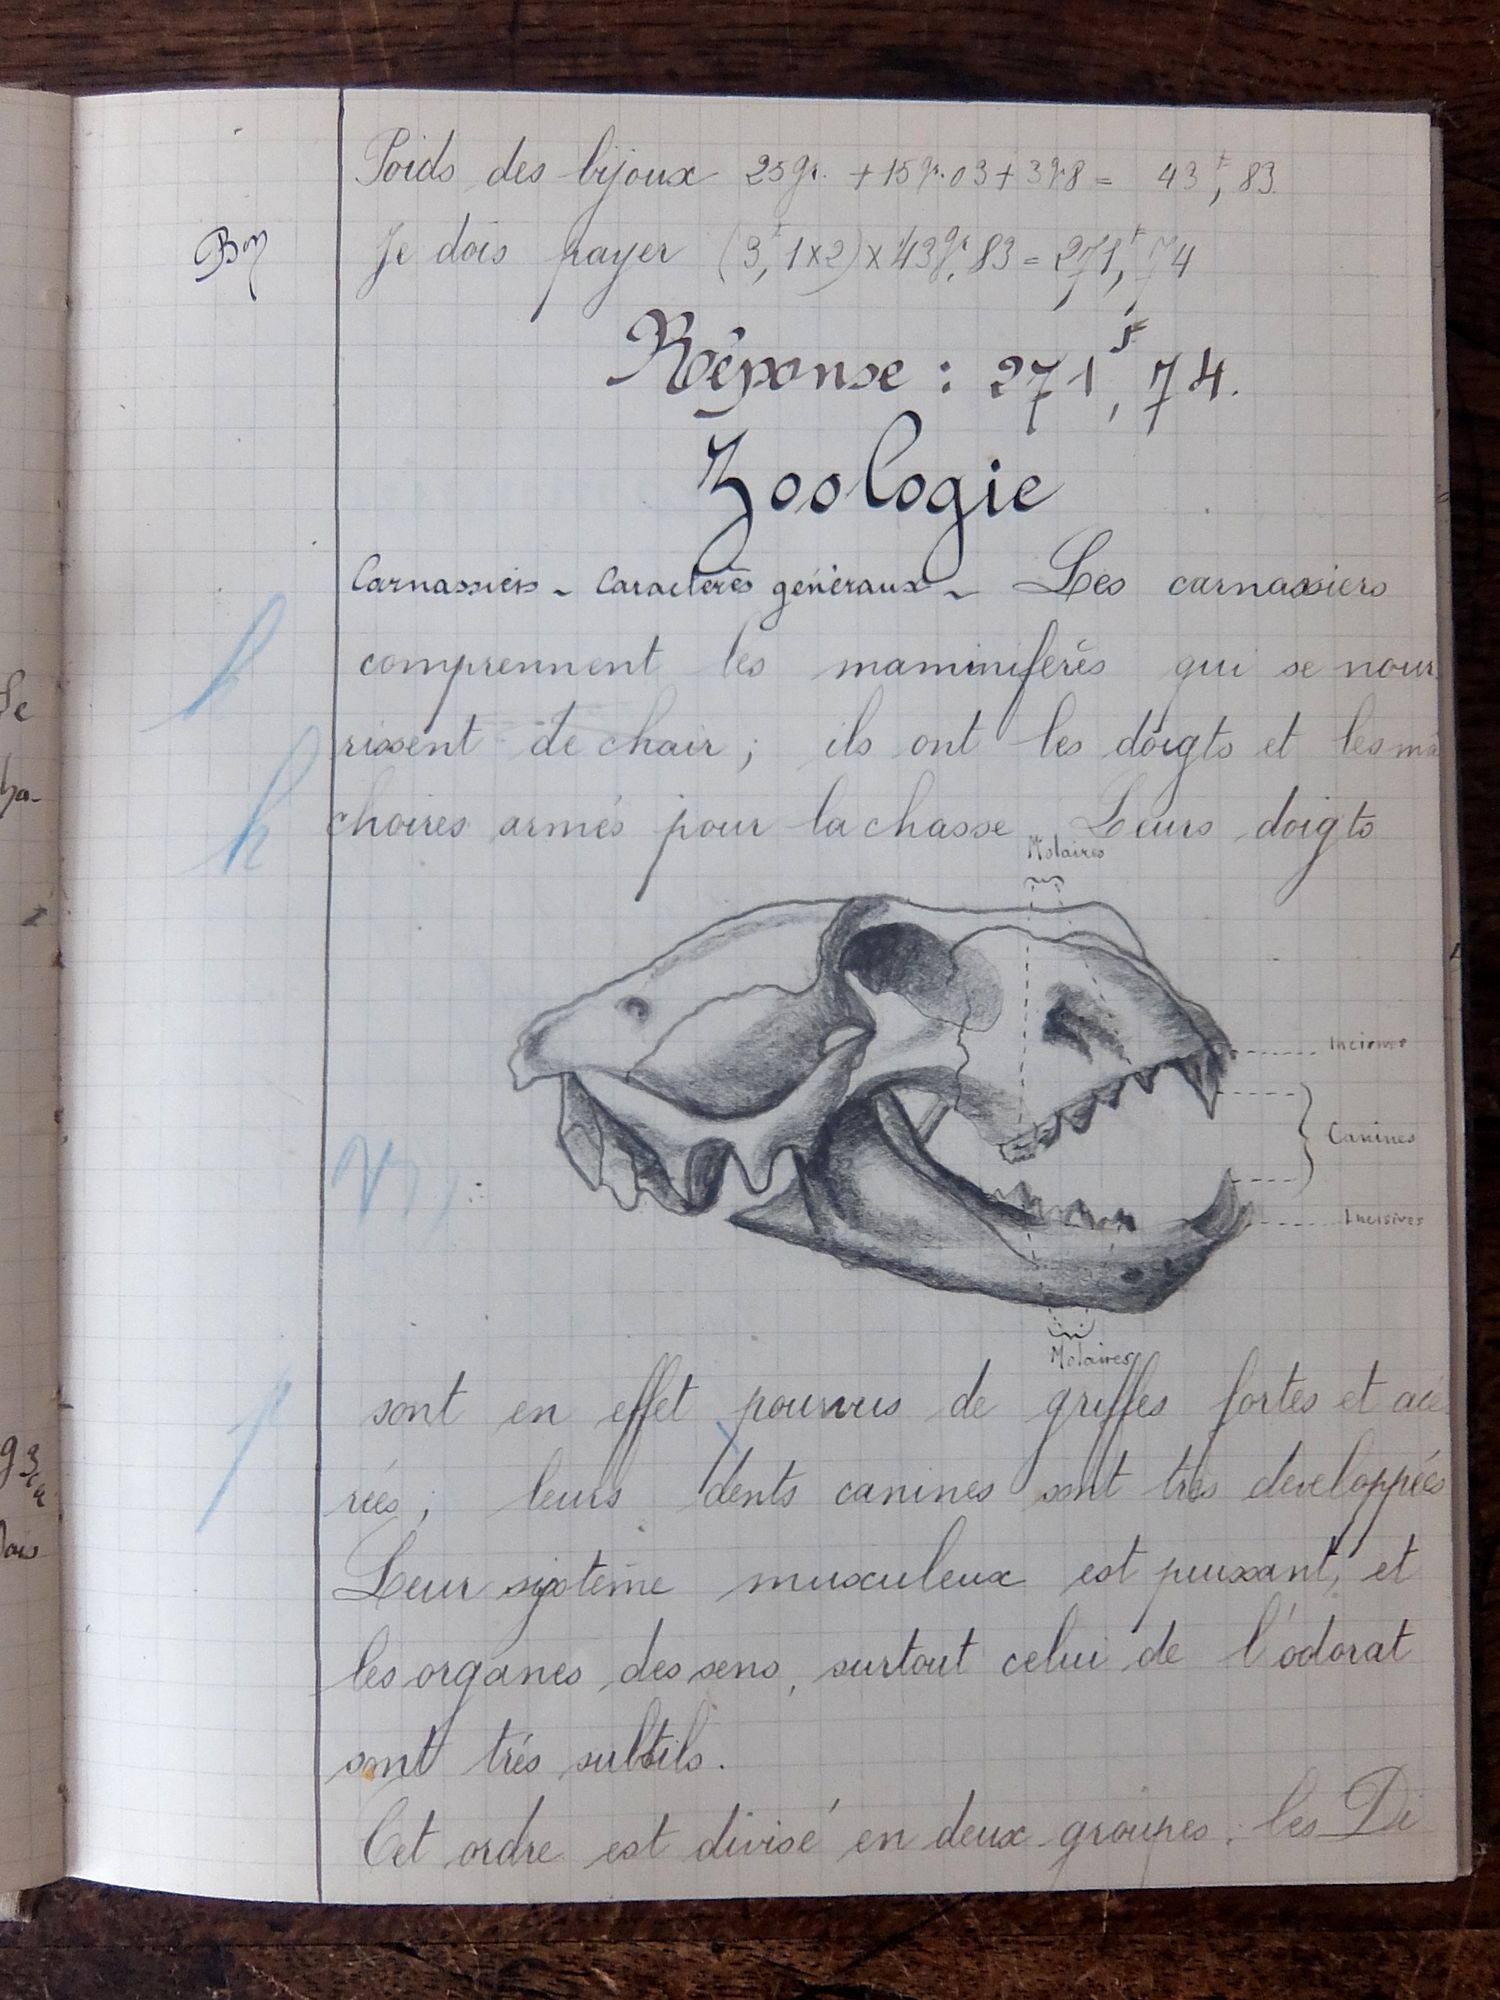 Poids des bijoux 25gr. + 15gr.03 + 3gr8 = 43f,83.
Bon
Je dois payer (3f,1 x 2) x 43gr,83 = 271f,74
Réponse : 271f,74.
Zoologie
Carnassiers - Caractères généraux - Les carnassiers
comprennent les mammifères qui se nour
rissent de chair ; ils ont les doigts et les ma
choires armés pour la chasse Leurs doigts
Molaires
Incisives
Canines
Incisives
Molaires
sont en effet pourvus de griffes fortes et acé
rées ; leurs dents canines sont très developpées
Leur système musculeux est puissant, et
les organes des sens, surtout celui de l'odorat
sont trés subtils.
Cet ordre est divisé en deux groupes : les Di